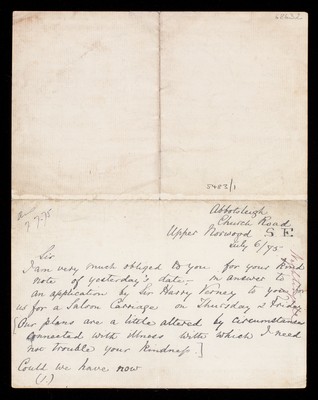 5403/1
Abbotsleigh
Church Road
Upper Norwood S.E
July 6/75
Sir
I am very much obliged to you for your kind
note of yesterday's date - in answer to
an application by Sir Harry Verney to you for
us for a Saloon Carriage on Thursday or Friday
[Our plans are a little altered by circumstances
connected with illness with which I need
not trouble your kindness.]
Could we have now
(1.)
7.7.75